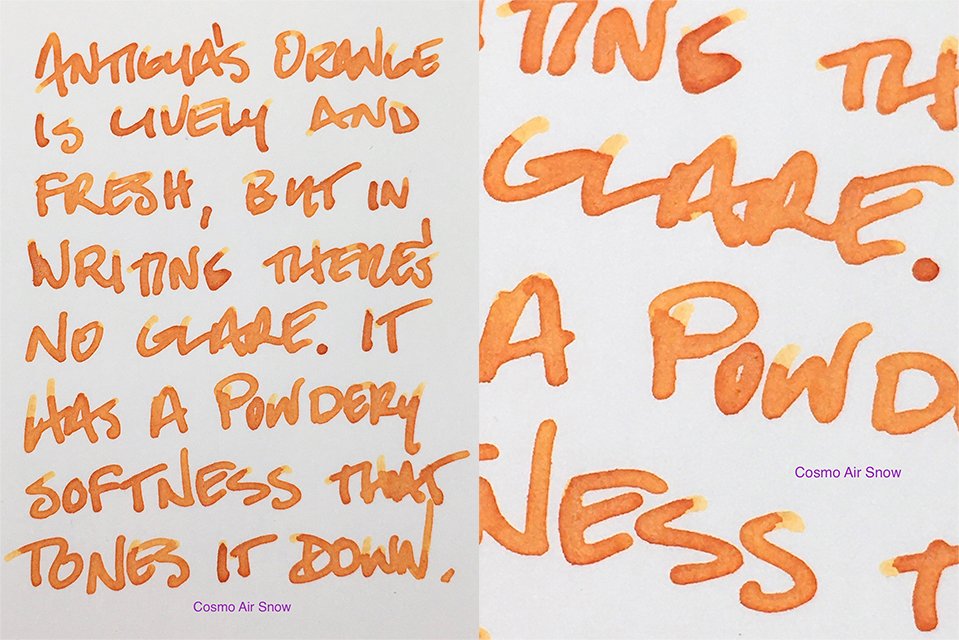 ANTIGUA'S ORANGE
IS LIVELY AND
FRESH, BUT IN
WRITING THERE'S
NO GLARE. IT
HAS A POWDERY
SOFTNESS THAT
TONES IT DOWN.
Cosmo Air Snow
TING TH
GLARE.
A POWD
Cosmo Air Snow
NESS T